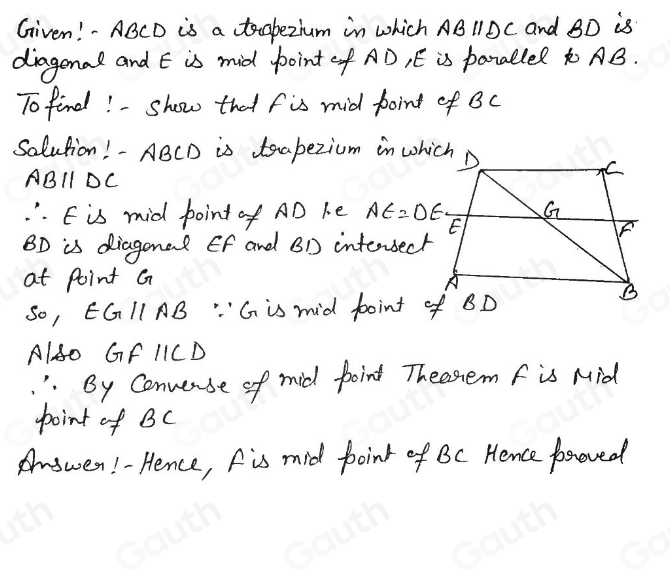 Given:- ABCD is a trapezium in which AB || DC and BD is
diagonal and E is mid point of AD, E is parallel to AB.
To find :- Show that F is mid point of BC
Solution:- ABCD is trapezium in which
AB || DC
∴ E is mid point of AD i.e AE = DE
BD is diagonal EF and BD intersect
at Point G
So, EG || AB ∵ G is mid point of BD
Also GF || CD
∴ By Converse of mid point Theorem F is Mid
point of BC
Answer:- Hence, F is mid point of BC Hence proved
D
C
E
G
F
A
B
Gauth